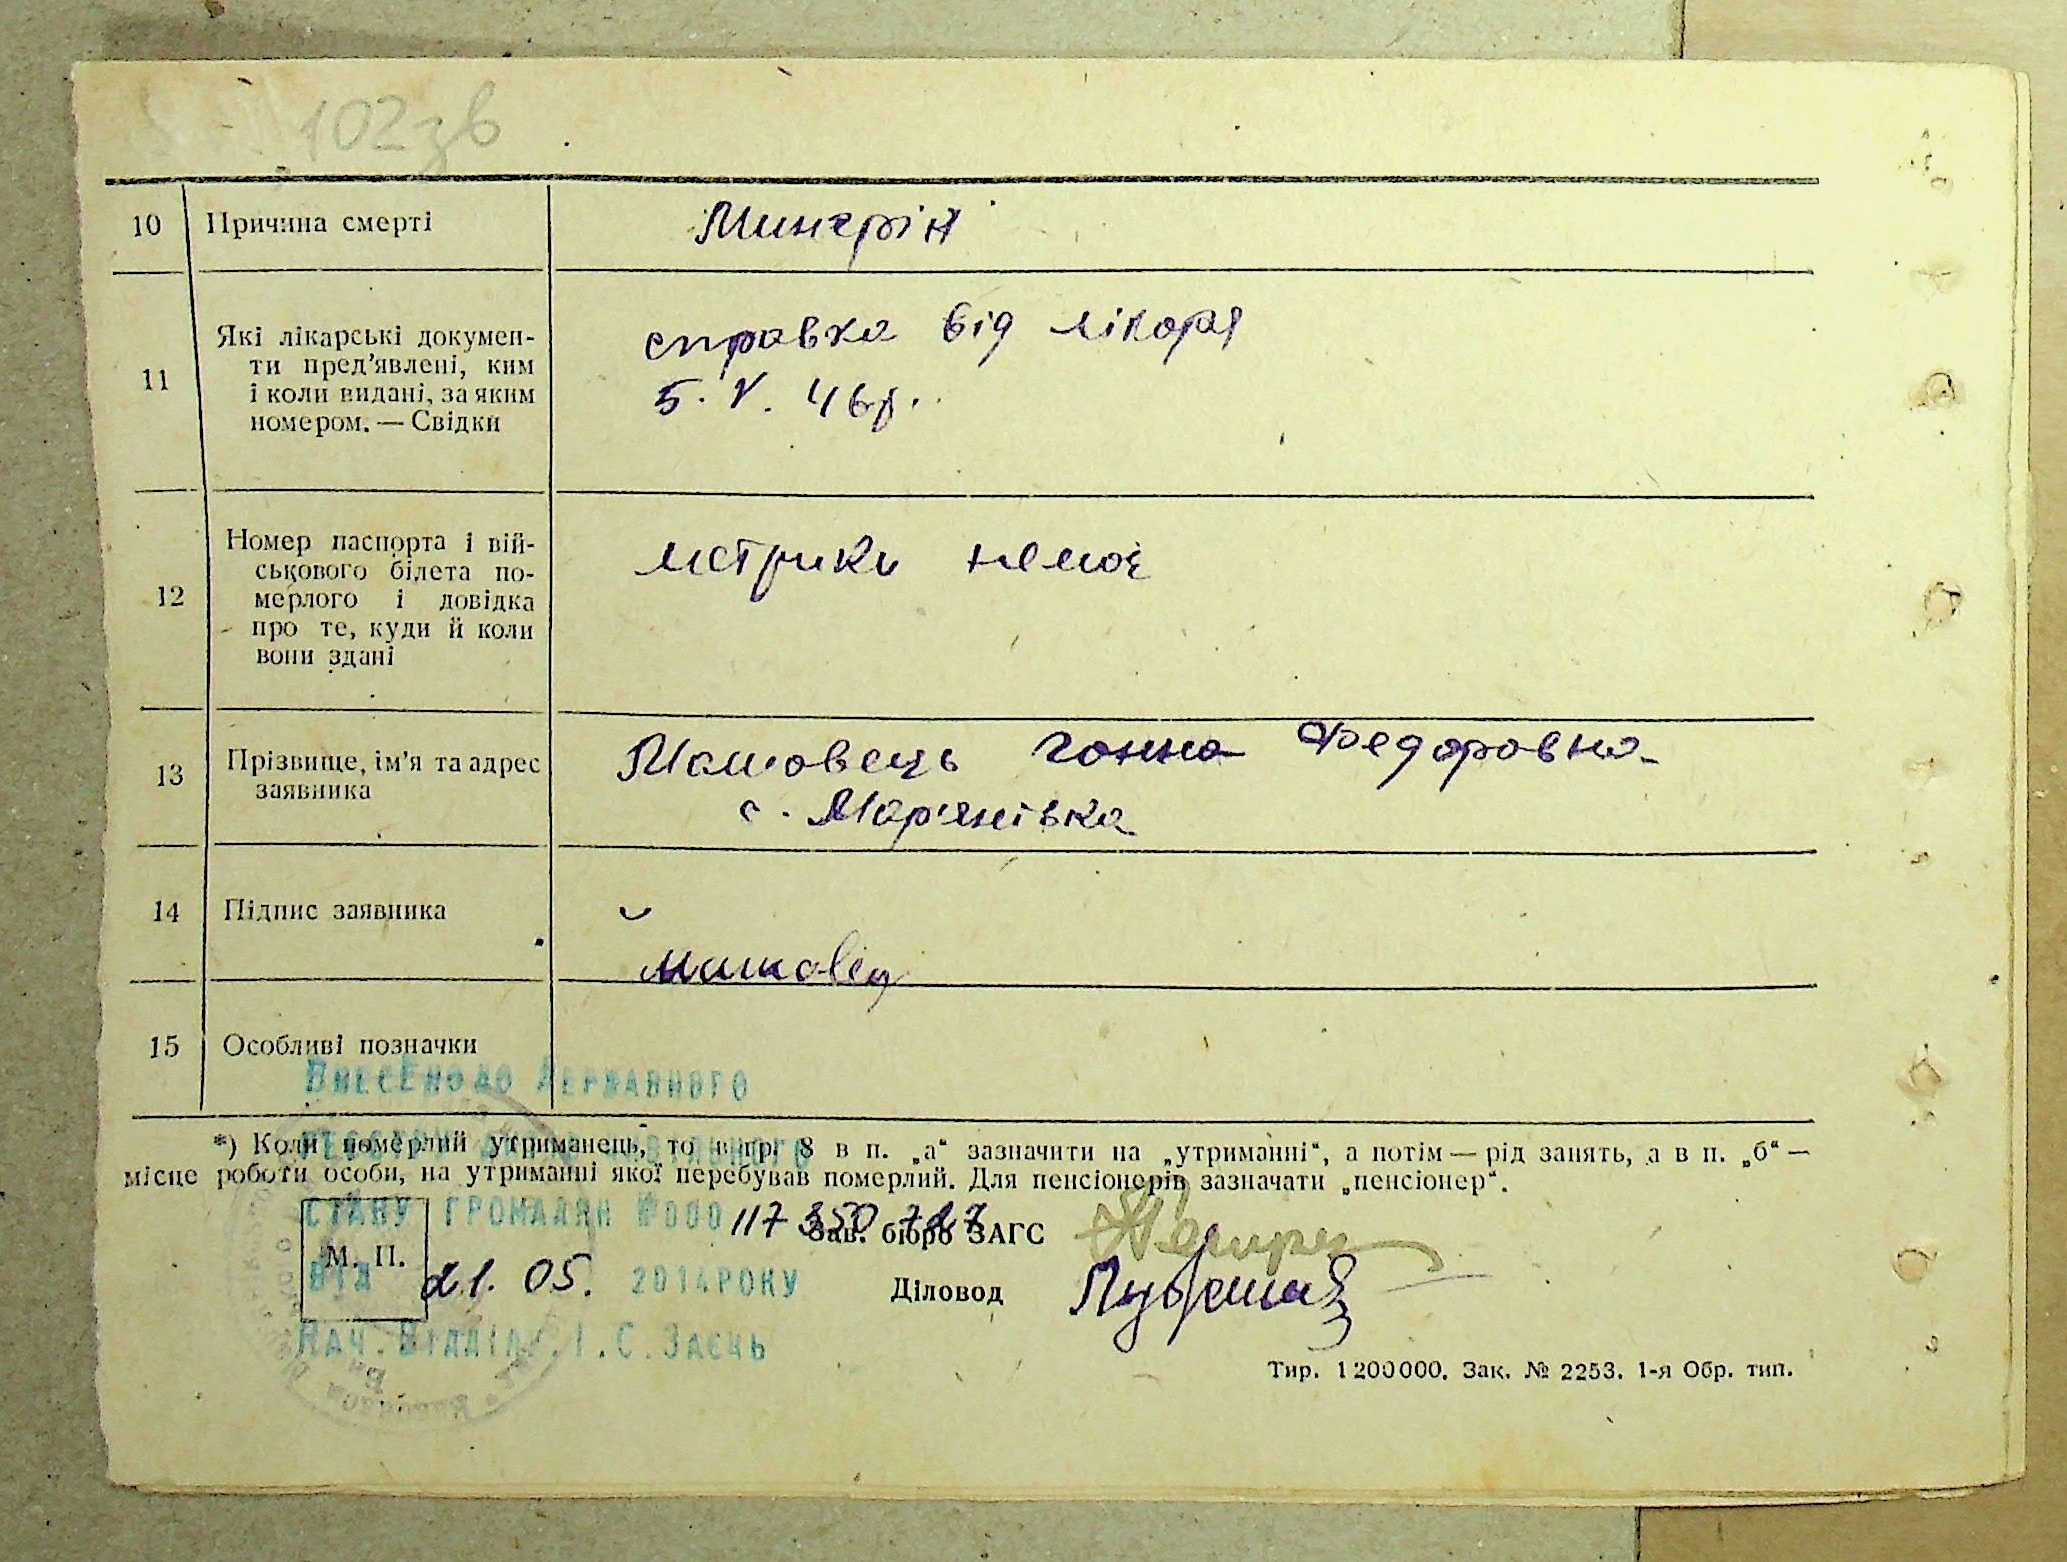 102зв
10 Причина смерті
11 Які лікарські докумен-
ти пред'явлені, ким
і коли видані, за яким
номером. — Свідки
справка від лікаря
5. V. 46р.
12 Номер паспорта і вій-
ськового білета по-
мерлого і довідка
про те, куди й коли
вони здані
метрики немає
13 Прізвище, ім'я та адрес
заявника
Ганна Федоровна
с. Мар'янівка
14 Підпис заявника
15 Особливі позначки
Внесено до Державного
*) Коли померлий утриманець, то в пр. 8 в п. „а“ зазначити на „утриманні“, а потім — рід занять, а в п. „б“ —
місце роботи особи, на утриманні якої перебував померлий. Для пенсіонерів зазначати „пенсіонер“.
стану громадян №000
Зав. бюро ЗАГС
М. П.
Від 21. 05. 2014 року
Діловод
Нач. відділу І.С. Заєць
Тир. 1200000. Зак. № 2253. 1-я Обр. тип.